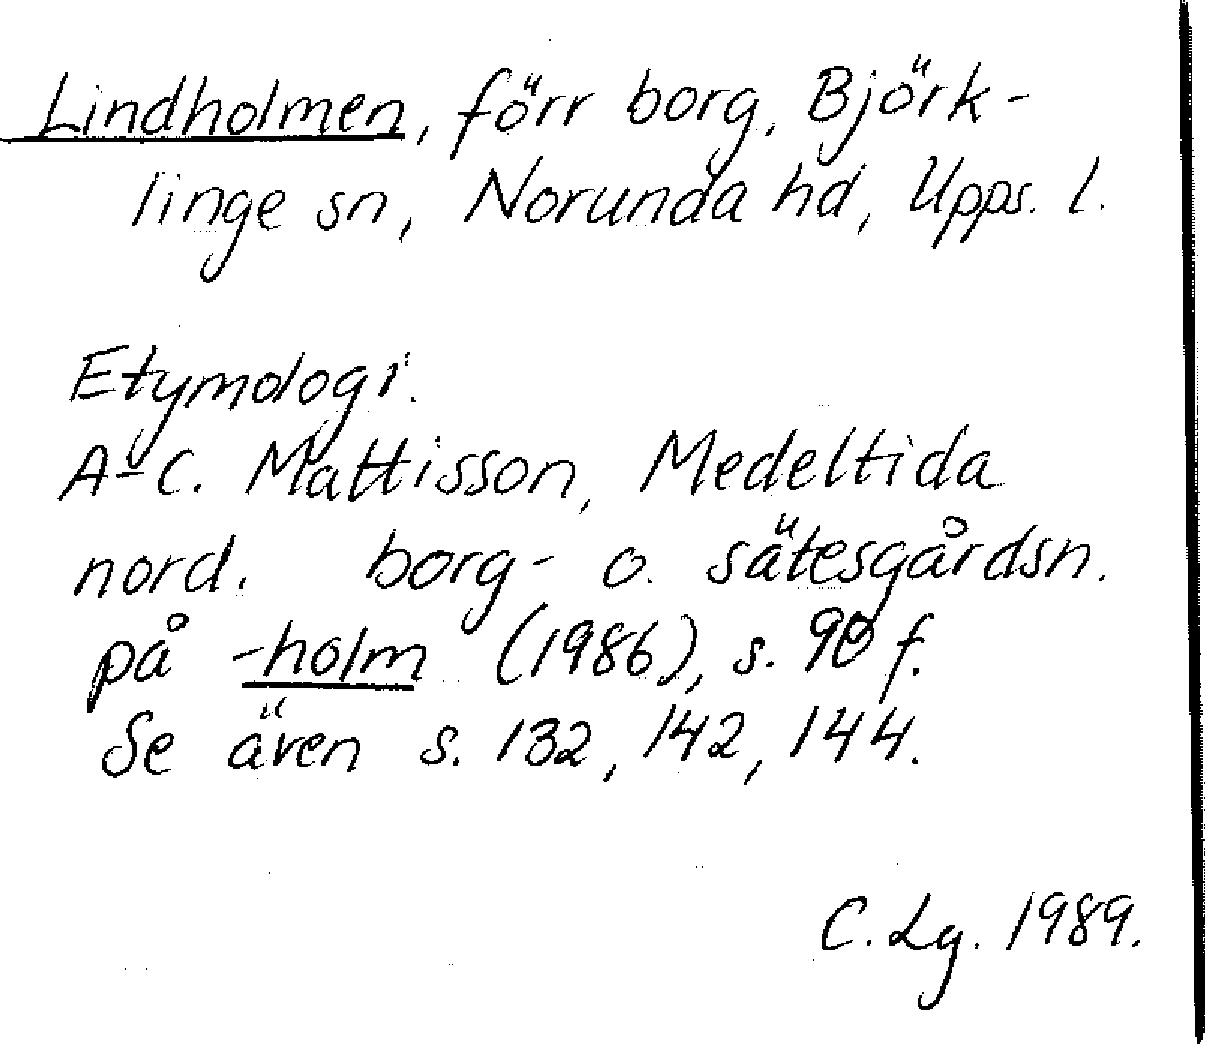 Lindholmen, förr borg, Björk-
linge sn, Norunda hd, Upps. l.
Etymologi.
A-C. Mattisson, Medeltida
nord. borg- o. sätesgårdsn.
på -holm (1986), s. 90 f.
Se även s. 132, 142, 144.
C. Lg. 1989.